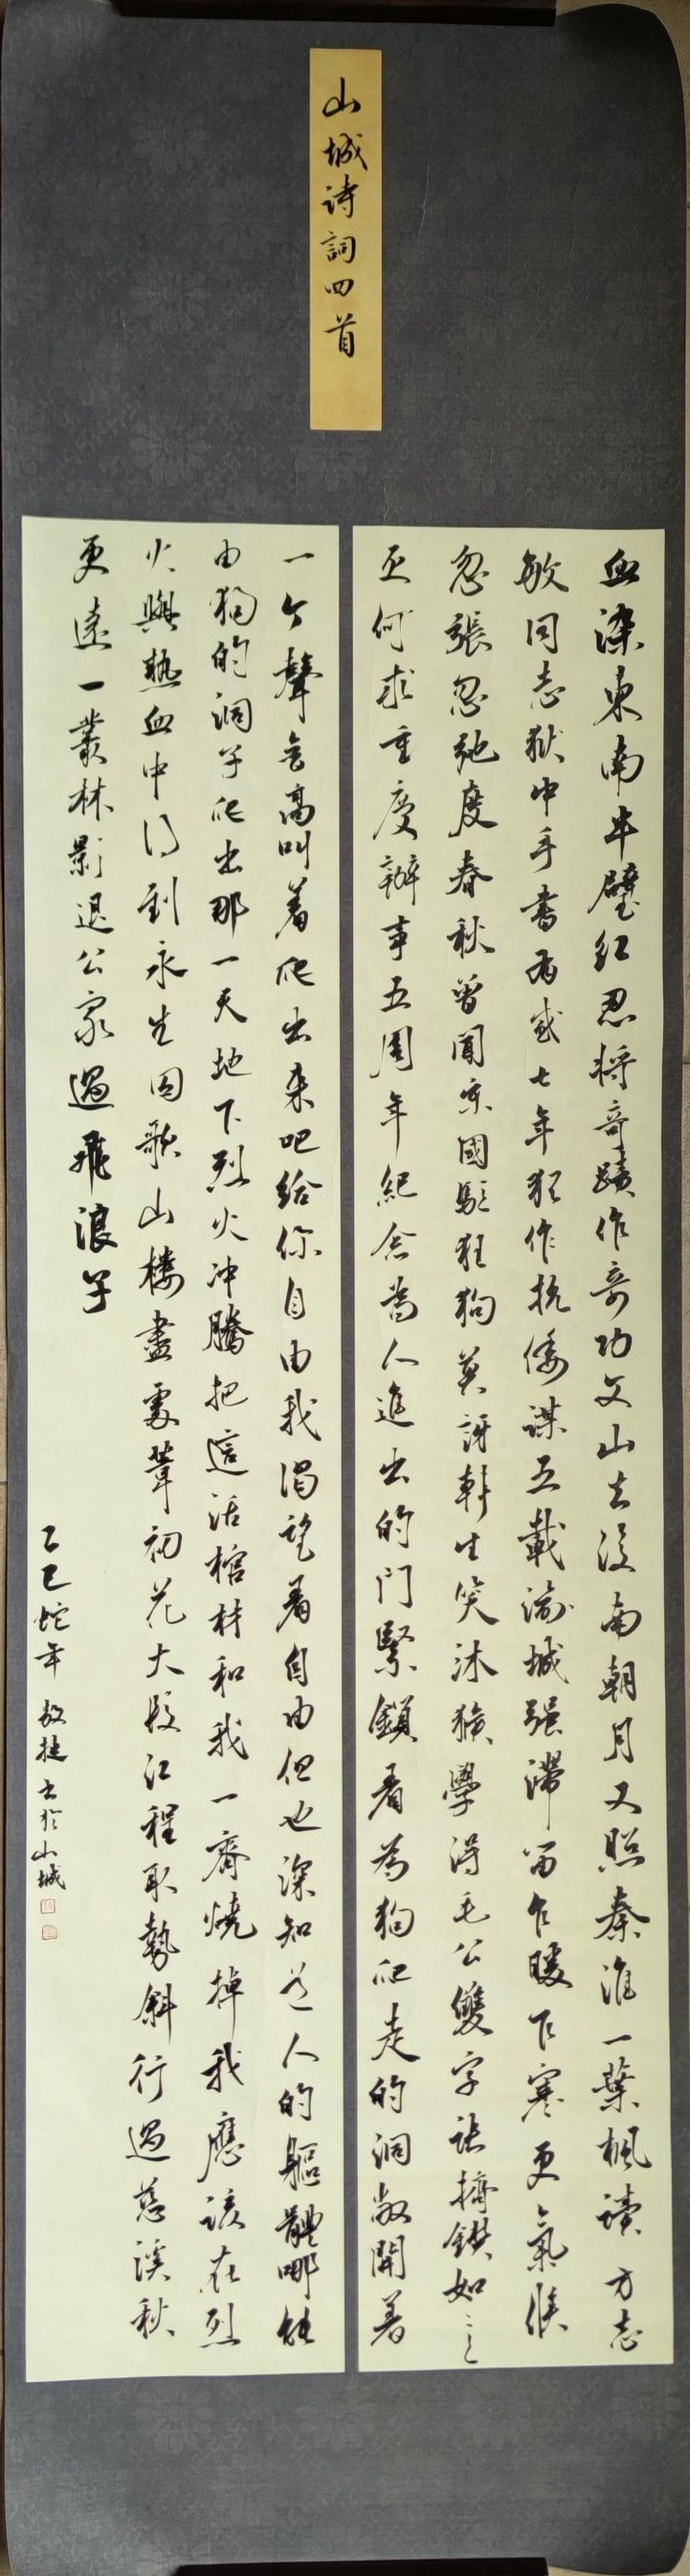 山城詩詞四首
血染東南半壁紅忍將奇蹟作奇功文山去後南朝月又照秦淮一葉楓讀方志
敏同志獄中手書有感七年狂作抗倭謀五載渝城强滯留乍暖乍寒更氣候
忽張忽弛度春秋曾聞宋國驅狂狗莫訝軒生笑沐猴學得毛公雙字訣擠釘如之
更何求重慶辦事五周年紀念為人進出的門緊鎖着為狗爬走的洞敞開着
一个聲音高叫着爬出来吧給你自由我渴望着自由但也深知道人的軀體哪能
由狗的洞子爬出那一天地下烈火冲騰把這活棺材和我一齊燒掉我應該在烈
火與熱血中得到永生囚歌山樓盡處葦初花大段江程取勢斜行過慈溪秋
更遠一叢林影退公家過飛浪子
乙巳蛇年 敖捷書於山城